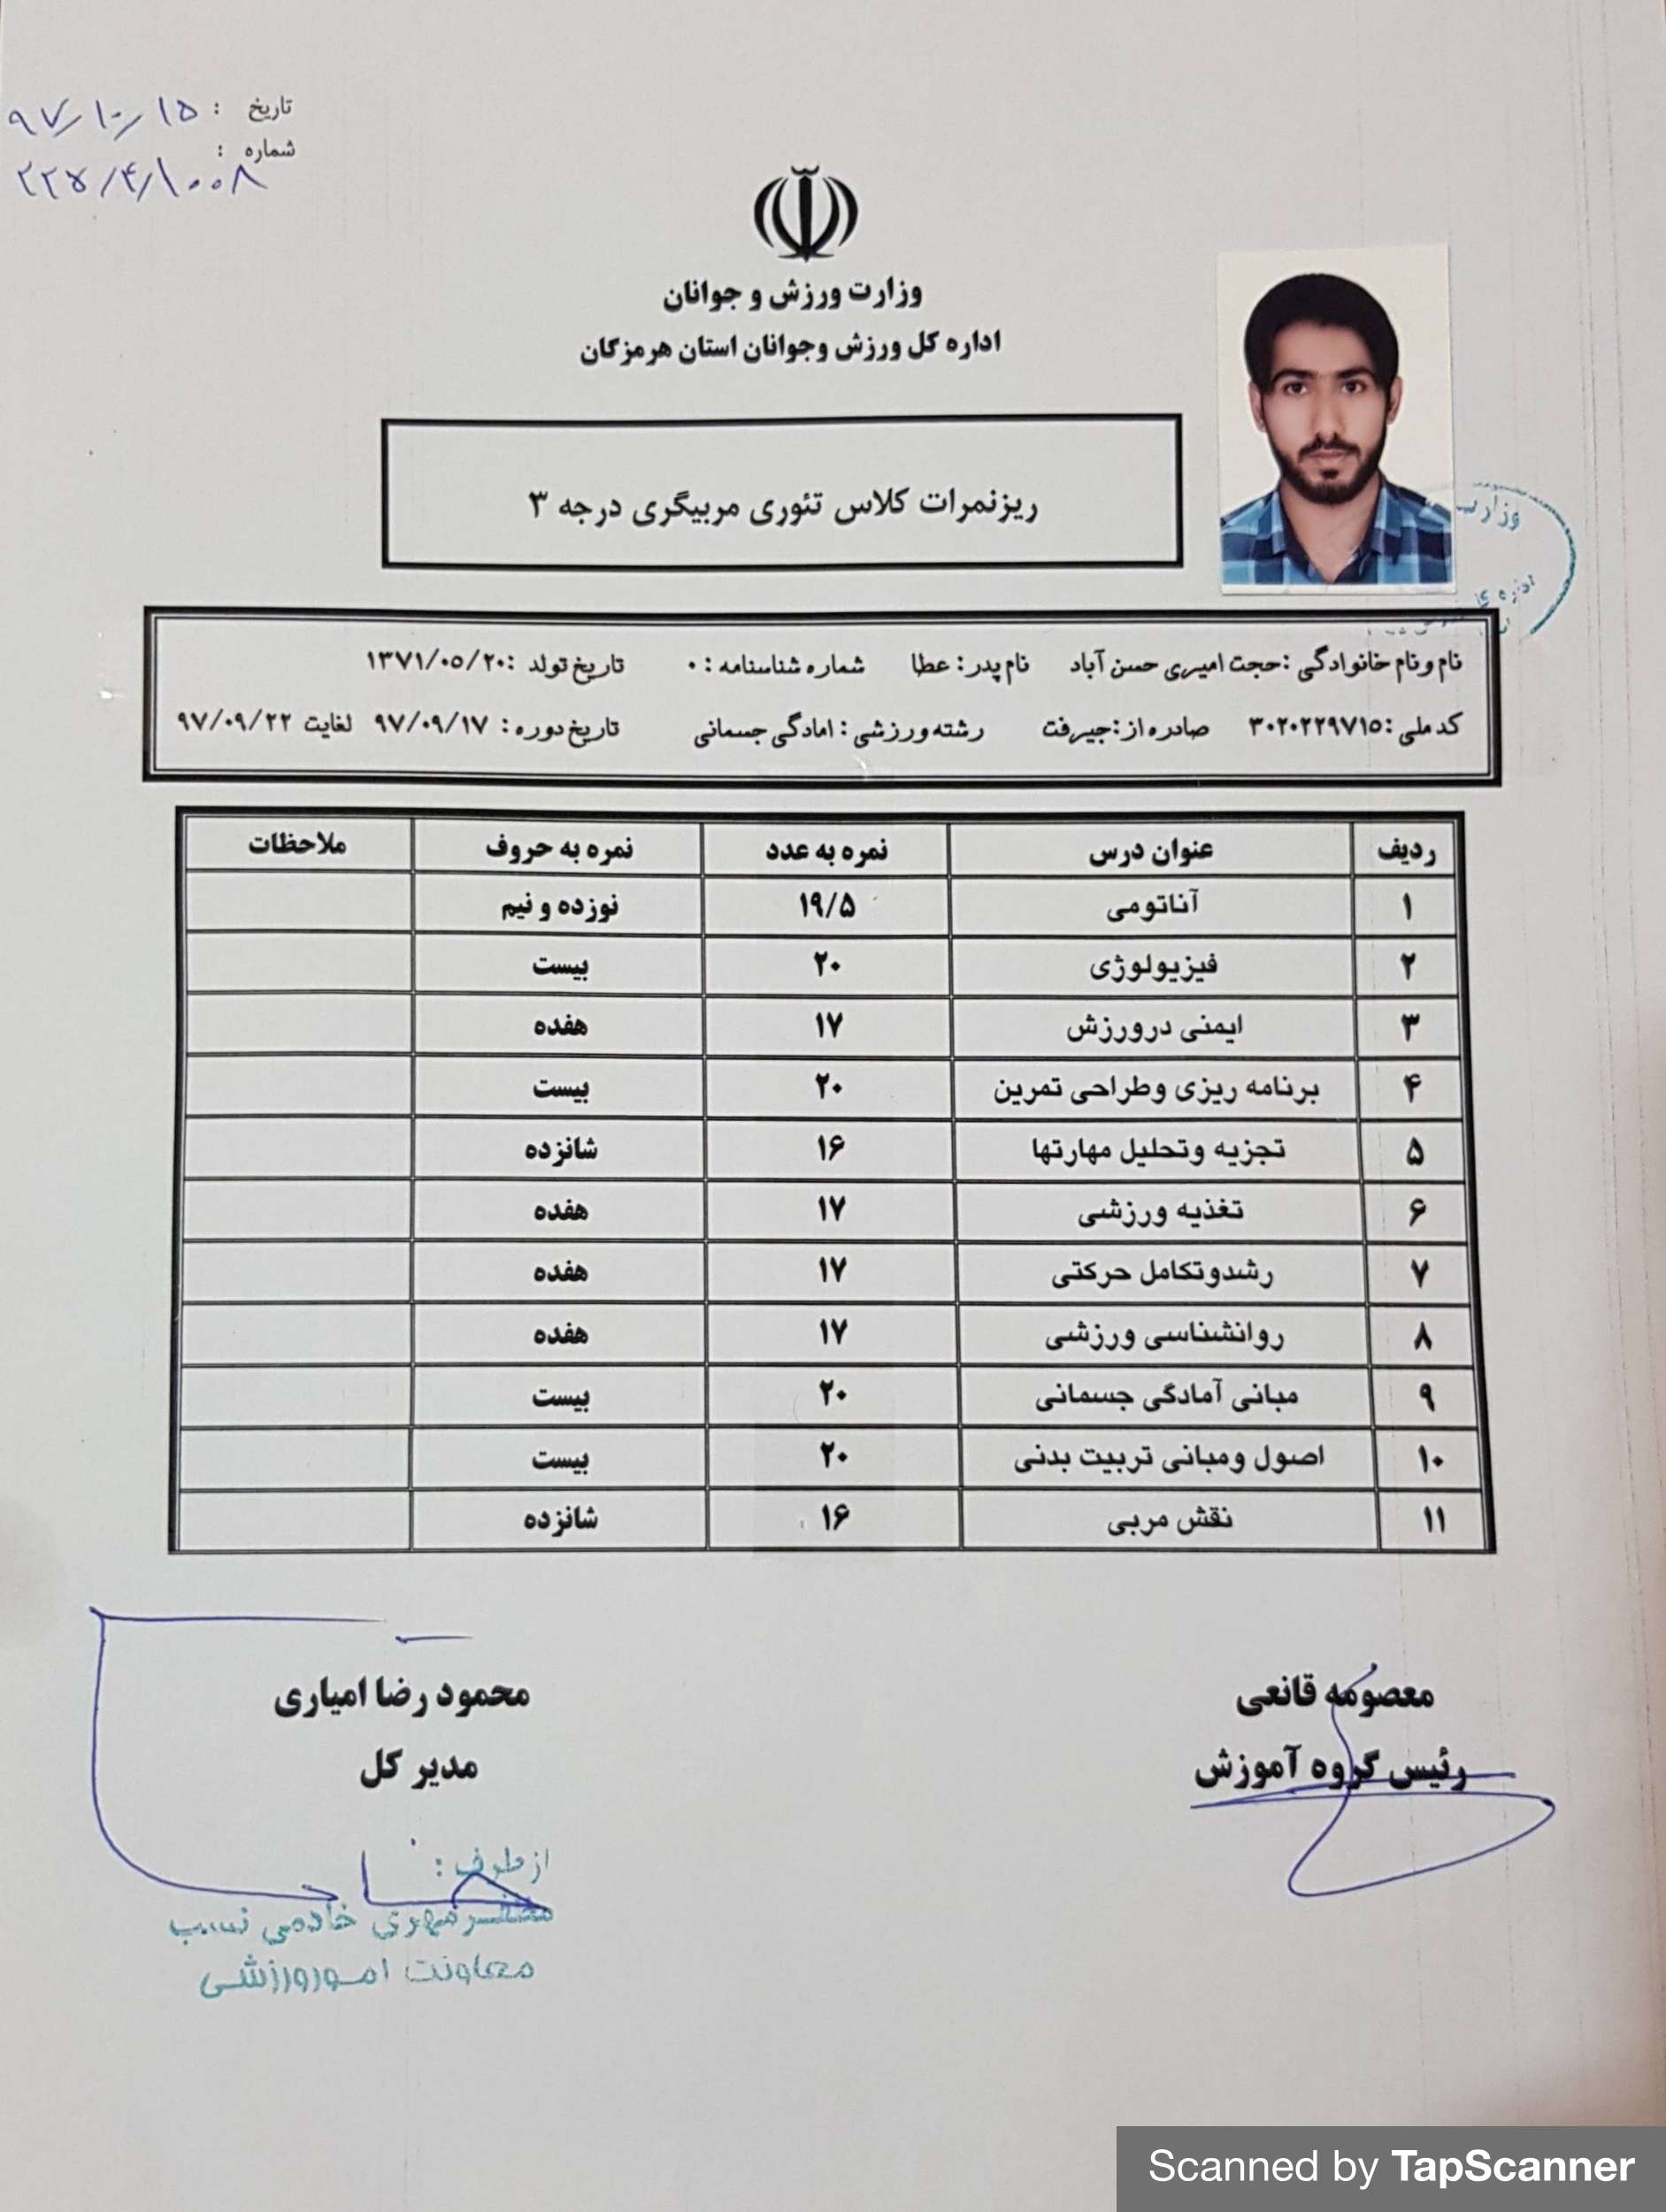 تاریخ : ۹۷/۱۰/۱۵
شماره :
۲۲۵/۴/۱۰۰۸
وزارت ورزش و جوانان
اداره کل ورزش وجوانان استان هرمزگان
ریزنمرات کلاس تئوری مربیگری درجه ۳
وزارت
اداره ک
نام ونام خانوادگی :حجت امیری حسن آباد نام پدر: عطا شماره شناسنامه : ۰ تاریخ تولد :۱۳۷۱/۰۵/۲۰
کد ملی :۳۰۲۰۲۲۹۷۱۵ صادره از:جیرفت رشته ورزشی : امادگی جسمانی تاریخ دوره : ۹۷/۰۹/۱۷ لغایت ۹۷/۰۹/۲۲
ردیف عنوان درس نمره به عدد نمره به حروف ملاحظات
۱ آناتومی ۱۹/۵ نوزده و نیم
۲ فیزیولوژی ۲۰ بیست
۳ ایمنی درورزش ۱۷ هفده
۴ برنامه ریزی وطراحی تمرین ۲۰ بیست
۵ تجزیه وتحلیل مهارتها ۱۶ شانزده
۶ تغذیه ورزشی ۱۷ هفده
۷ رشدوتکامل حرکتی ۱۷ هفده
۸ روانشناسی ورزشی ۱۷ هفده
۹ مبانی آمادگی جسمانی ۲۰ بیست
۱۰ اصول ومبانی تربیت بدنی ۲۰ بیست
۱۱ نقش مربی ۱۶ شانزده
معصومه قانعی
رئیس گروه آموزش
محمود رضا امیاری
مدیر کل
از طرف :
مهری خادمی نسب
معاونت امور ورزشی
Scanned by TapScanner